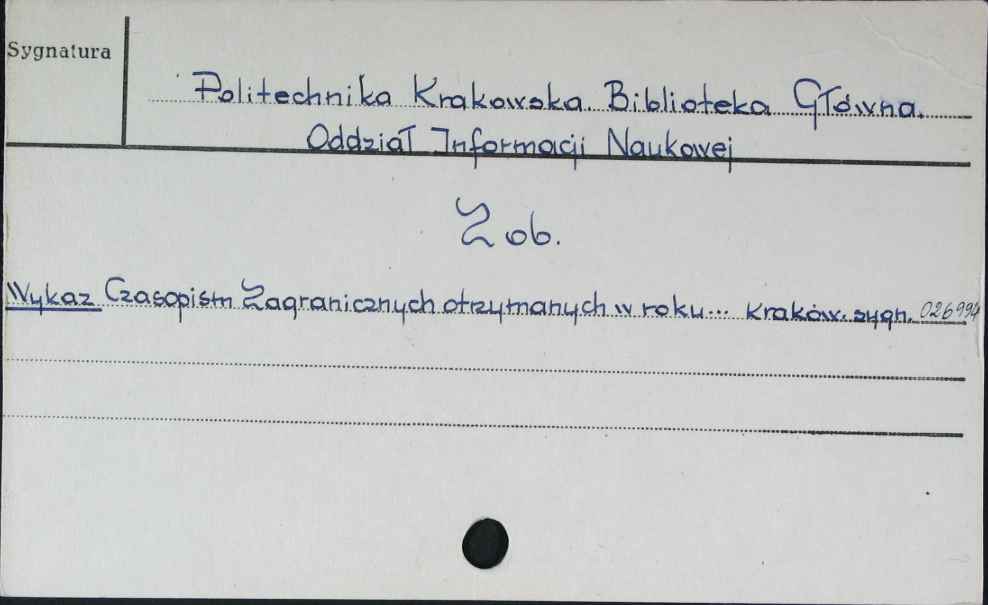 Sygnatura
Politechnika Krakowska. Biblioteka Główna.
Oddział Informacji Naukowej
Zob.
Wykaz Czasopism Zagranicznych otrzymanych w roku... Kraków. sygn. 026994